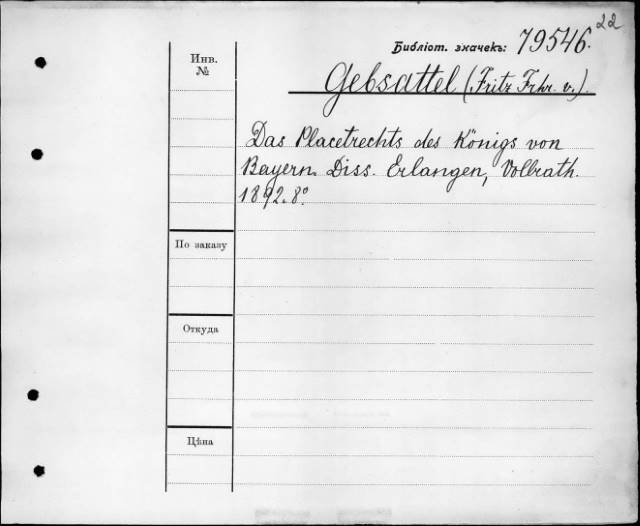 22
Библіот. значекъ: 79546.
Инв.
№
Gebsattel (Fritz Frhr. v.).
Das Placetrechts des Königs von
Bayern. Diss. Erlangen, Vollrath.
1892. 8°.
По заказу
Откуда
Цѣна